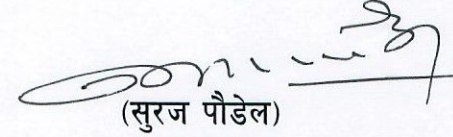 (सुरज पौडेल)